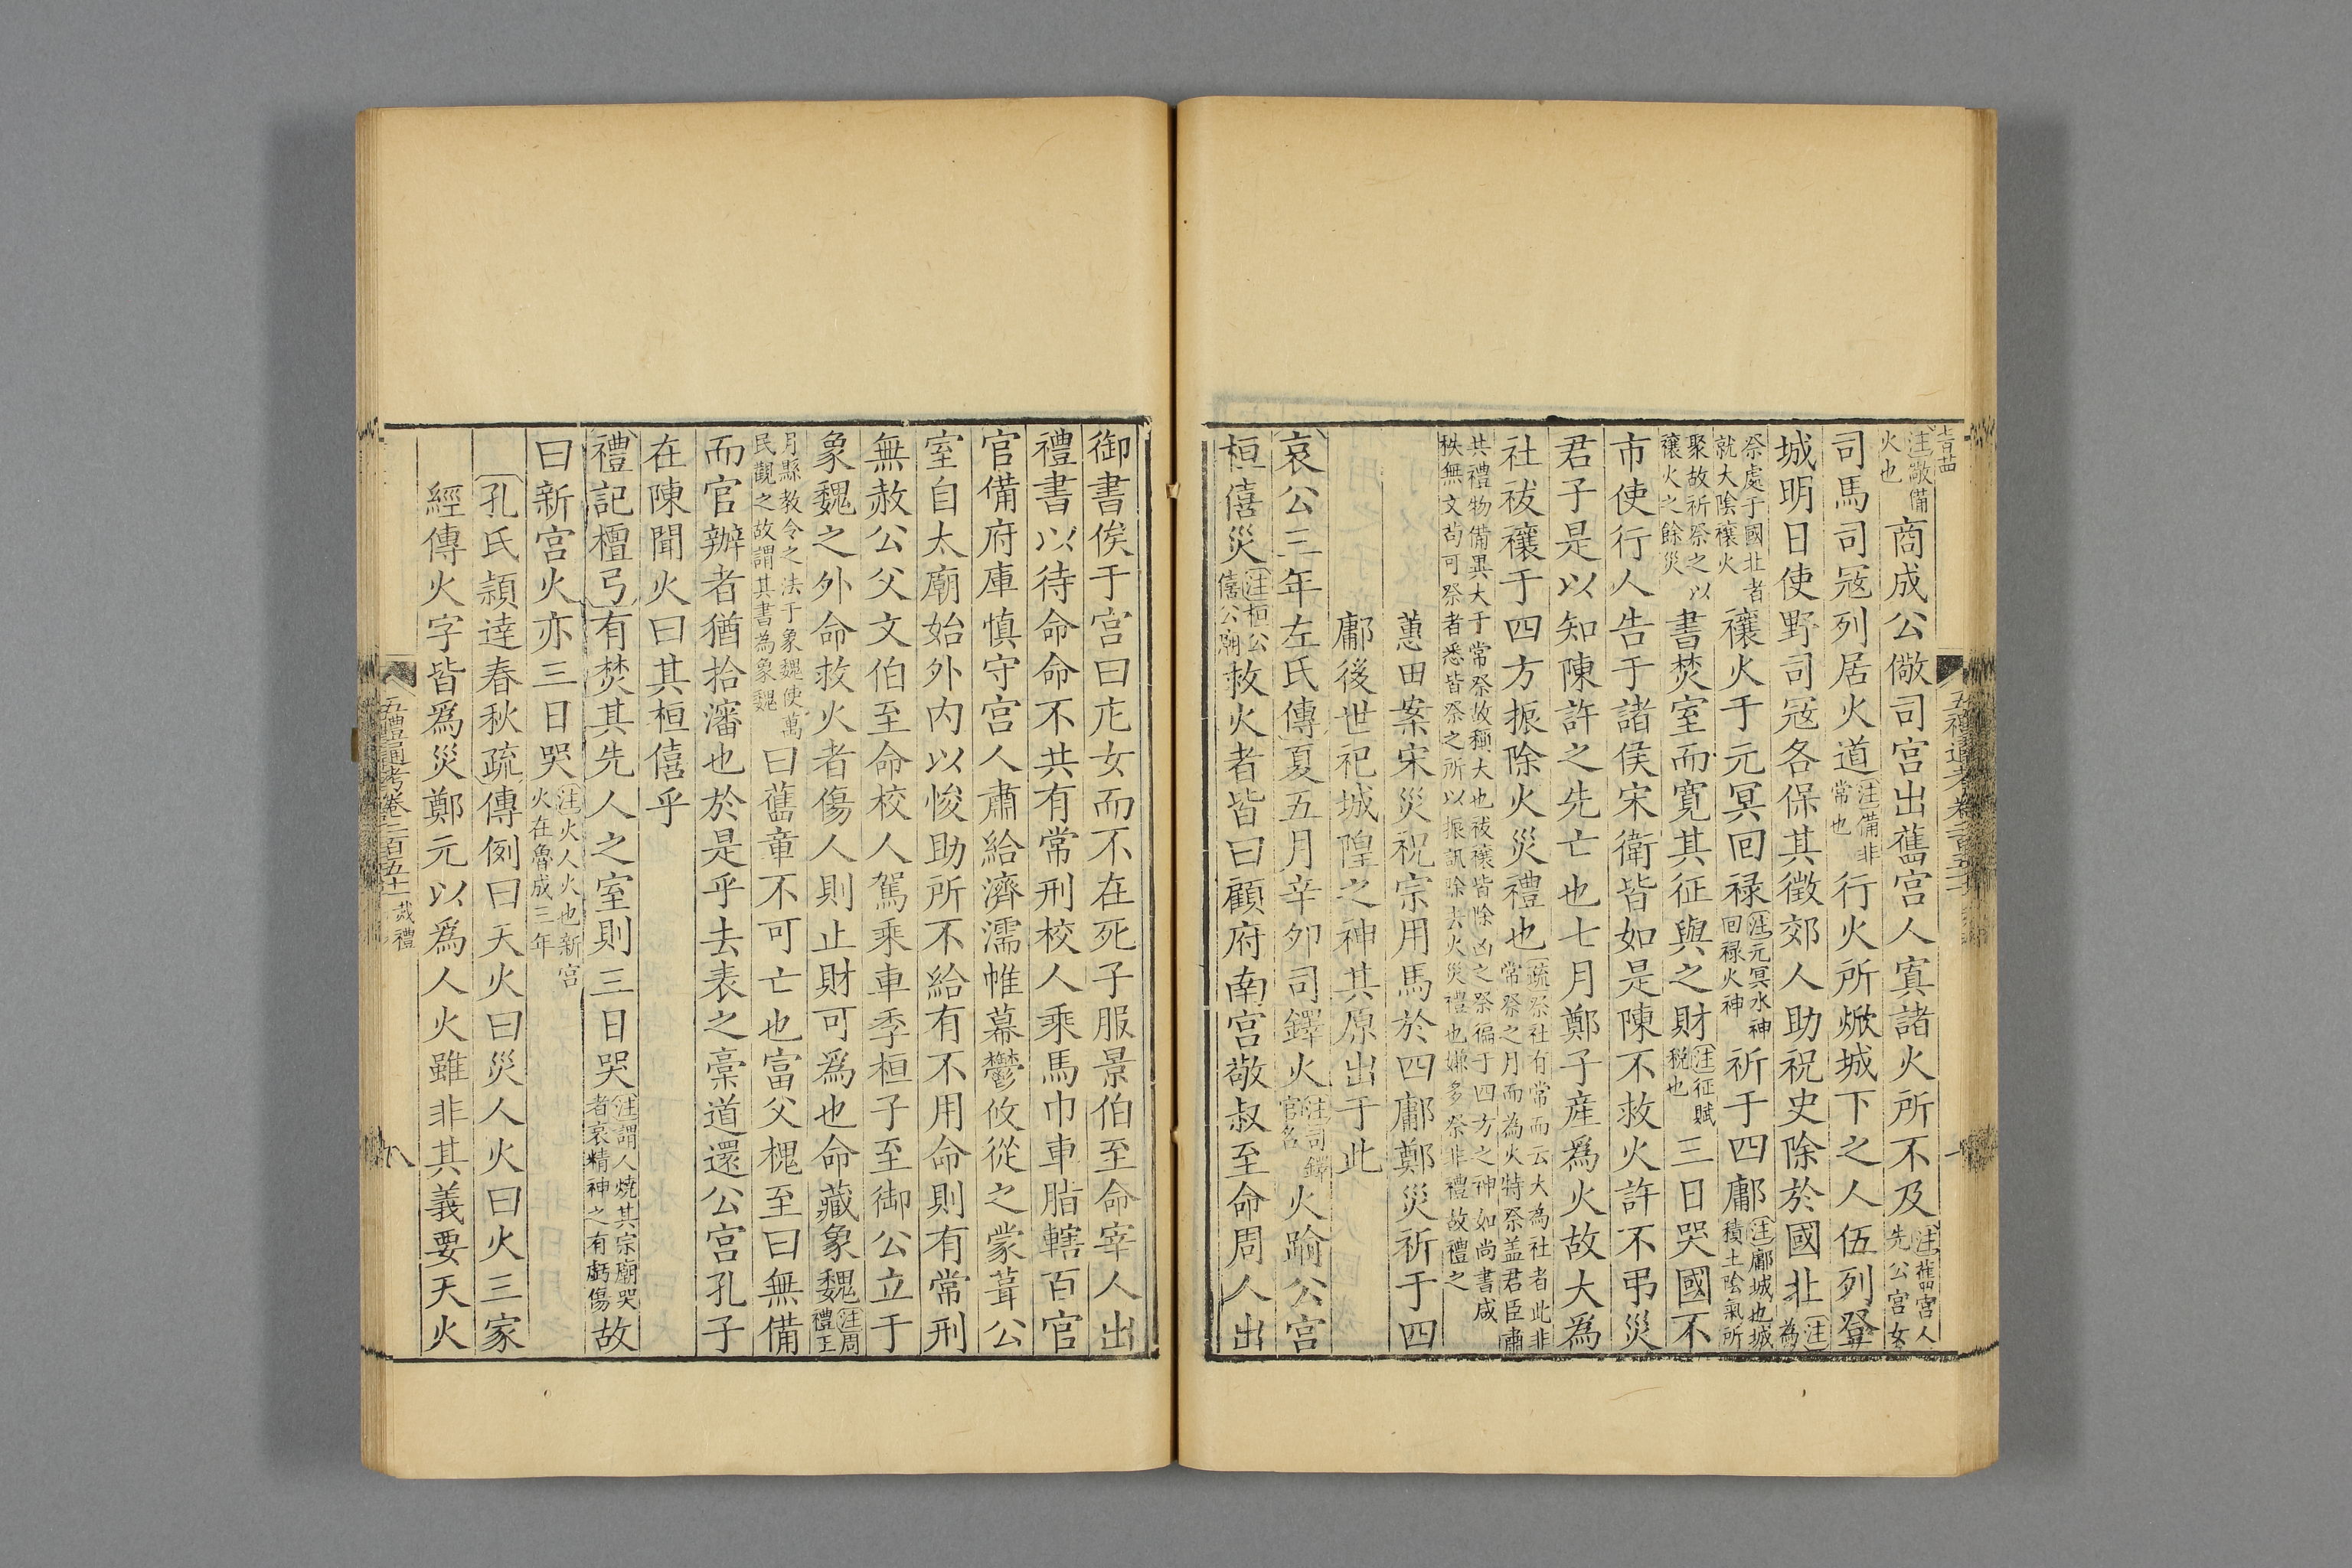 注儆備火也商成公儆司宮出舊宮人寘諸火所不及注舊宮人先公宮女
司馬司冦列居火道注備非常也行火所焮城下之人伍列登
城明日使野司冦各保其徵郊人助祝史除於國北注為
祭處于國北者就大陰禳火禳火于元冥回禄注元冥水神回禄火神祈于四鄘注鄘城也城積土陰氣所
聚故祈祭之以禳火之餘災書焚室而寛其征與之財注征賦税也三日哭國不
市使行人告于諸侯宋衛皆如是陳不救火許不弔災
君子是以知陳許之先亡也七月鄭子産為火故大為
社祓禳于四方振除火災禮也疏祭社有常而云大為社者此非常祭之月而為火特祭盖君臣肅
共禮物備異大于常祭故稱大也祓禳皆除凶之祭徧于四方之神如尚書咸秩無文茍可祭者悉皆祭之所以振訊除去火災禮也嫌多祭非禮故禮之
蕙田案宋災祝宗用馬於四鄘鄭災祈于四
鄘後世祀城隍之神其原出于此
哀公三年左氏傳夏五月辛夘司鐸火注司鐸官名火踰公宮
桓僖災注桓公僖公廟救火者皆曰顧府南宮敬叔至命周人出
御書俟于宮曰庀女而不在死子服景伯至命宰人出
禮書以待命命不共有常刑校人乘馬巾車脂轄百官
官備府庫慎守宮人肅給濟濡帷幕鬱攸從之蒙葺公
室自太廟始外内以悛助所不給有不用命則有常刑
無赦公父文伯至命校人駕乘車季桓子至御公立于
象魏之外命救火者傷人則止財可為也命藏象魏注周禮正
月縣教令之法于象魏使萬民觀之故謂其書為象魏曰舊章不可亡也富父槐至曰無備
而官辦者猶拾瀋也於是乎去表之槀道還公宮孔子
在陳聞火曰其桓僖乎
禮記檀弓有焚其先人之室則三日哭注謂人燒其宗廟哭者哀精神之有虧傷故
曰新宮火亦三日哭注火人火也新宮火在魯成三年
孔氏頴達春秋疏傳例曰天火曰災人火曰火三家
經傳火字皆爲災鄭元以爲人火雖非其義要天火
五禮通考卷二百五十一 烖禮
八